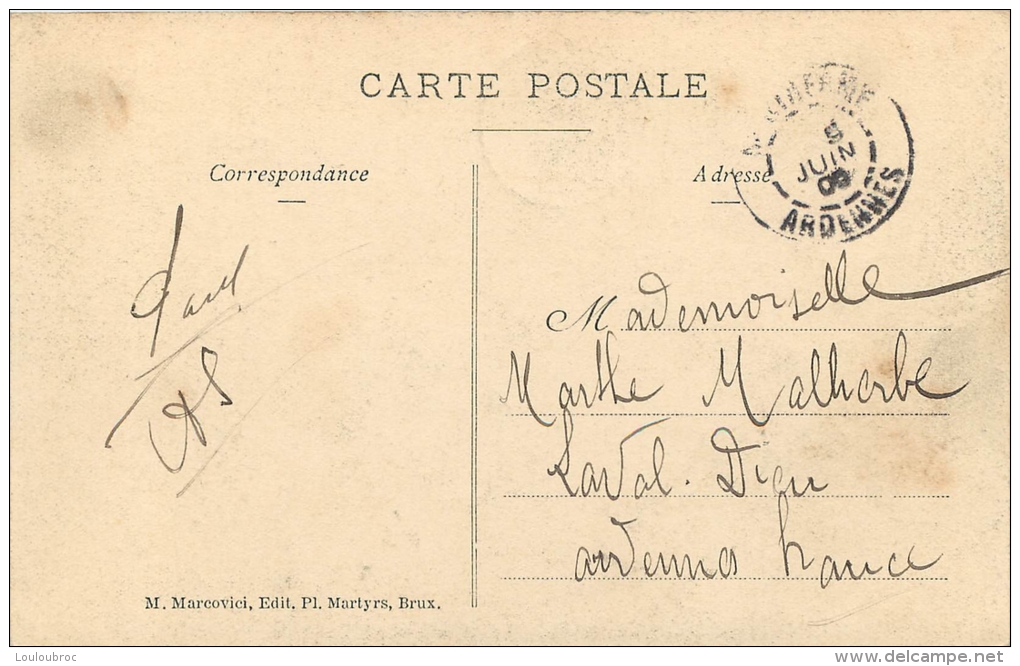 CARTE POSTALE
Correspondance
Adresse
JUIN
ARDENNES
Mademoiselle
Marthe Malherbe
Laval. Dieu
ardennes france
M. Marcovici, Edit. Pl. Martyrs, Brux.
© Louloubroc
www.delcampe.net